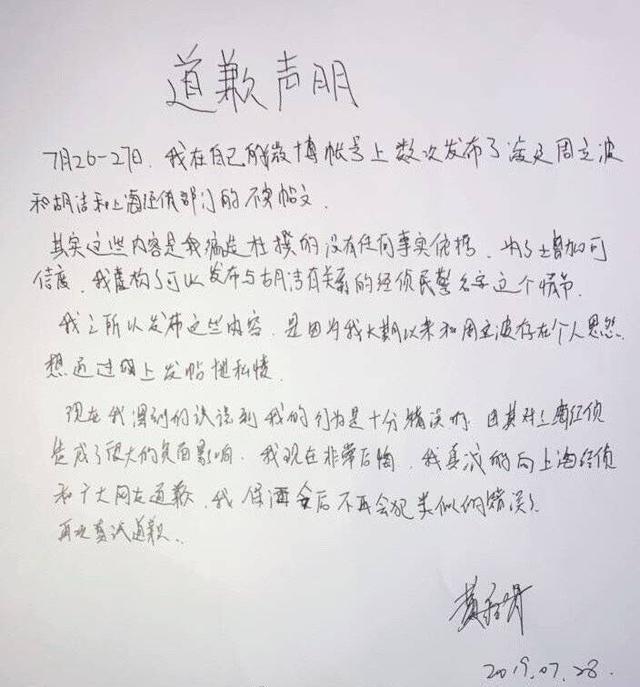 道歉声明
7月26-27日,我在自己的微博帐号上数次发布了涉及周立波
和胡洁和上海经侦部门的不实帖文.
其实这些内容是我编造杜撰的没有任何事实依据,为了增加可
信度,我虚构了可以发布与胡洁有关系的经侦民警名字这个情节.
我之所以发布这些内容,是因为我长期以来和周立波存在个人恩怨.
想通过网上发帖泄私愤.
现在我深刻的认识到我的行为是十分错误的.因其对上海经侦
造成了很大的负面影响.我现在非常后悔,我真诚的向上海经侦
和广大网友道歉,我保证今后不再会犯类似的错误.
再次真诚道歉.
2019.07.28.